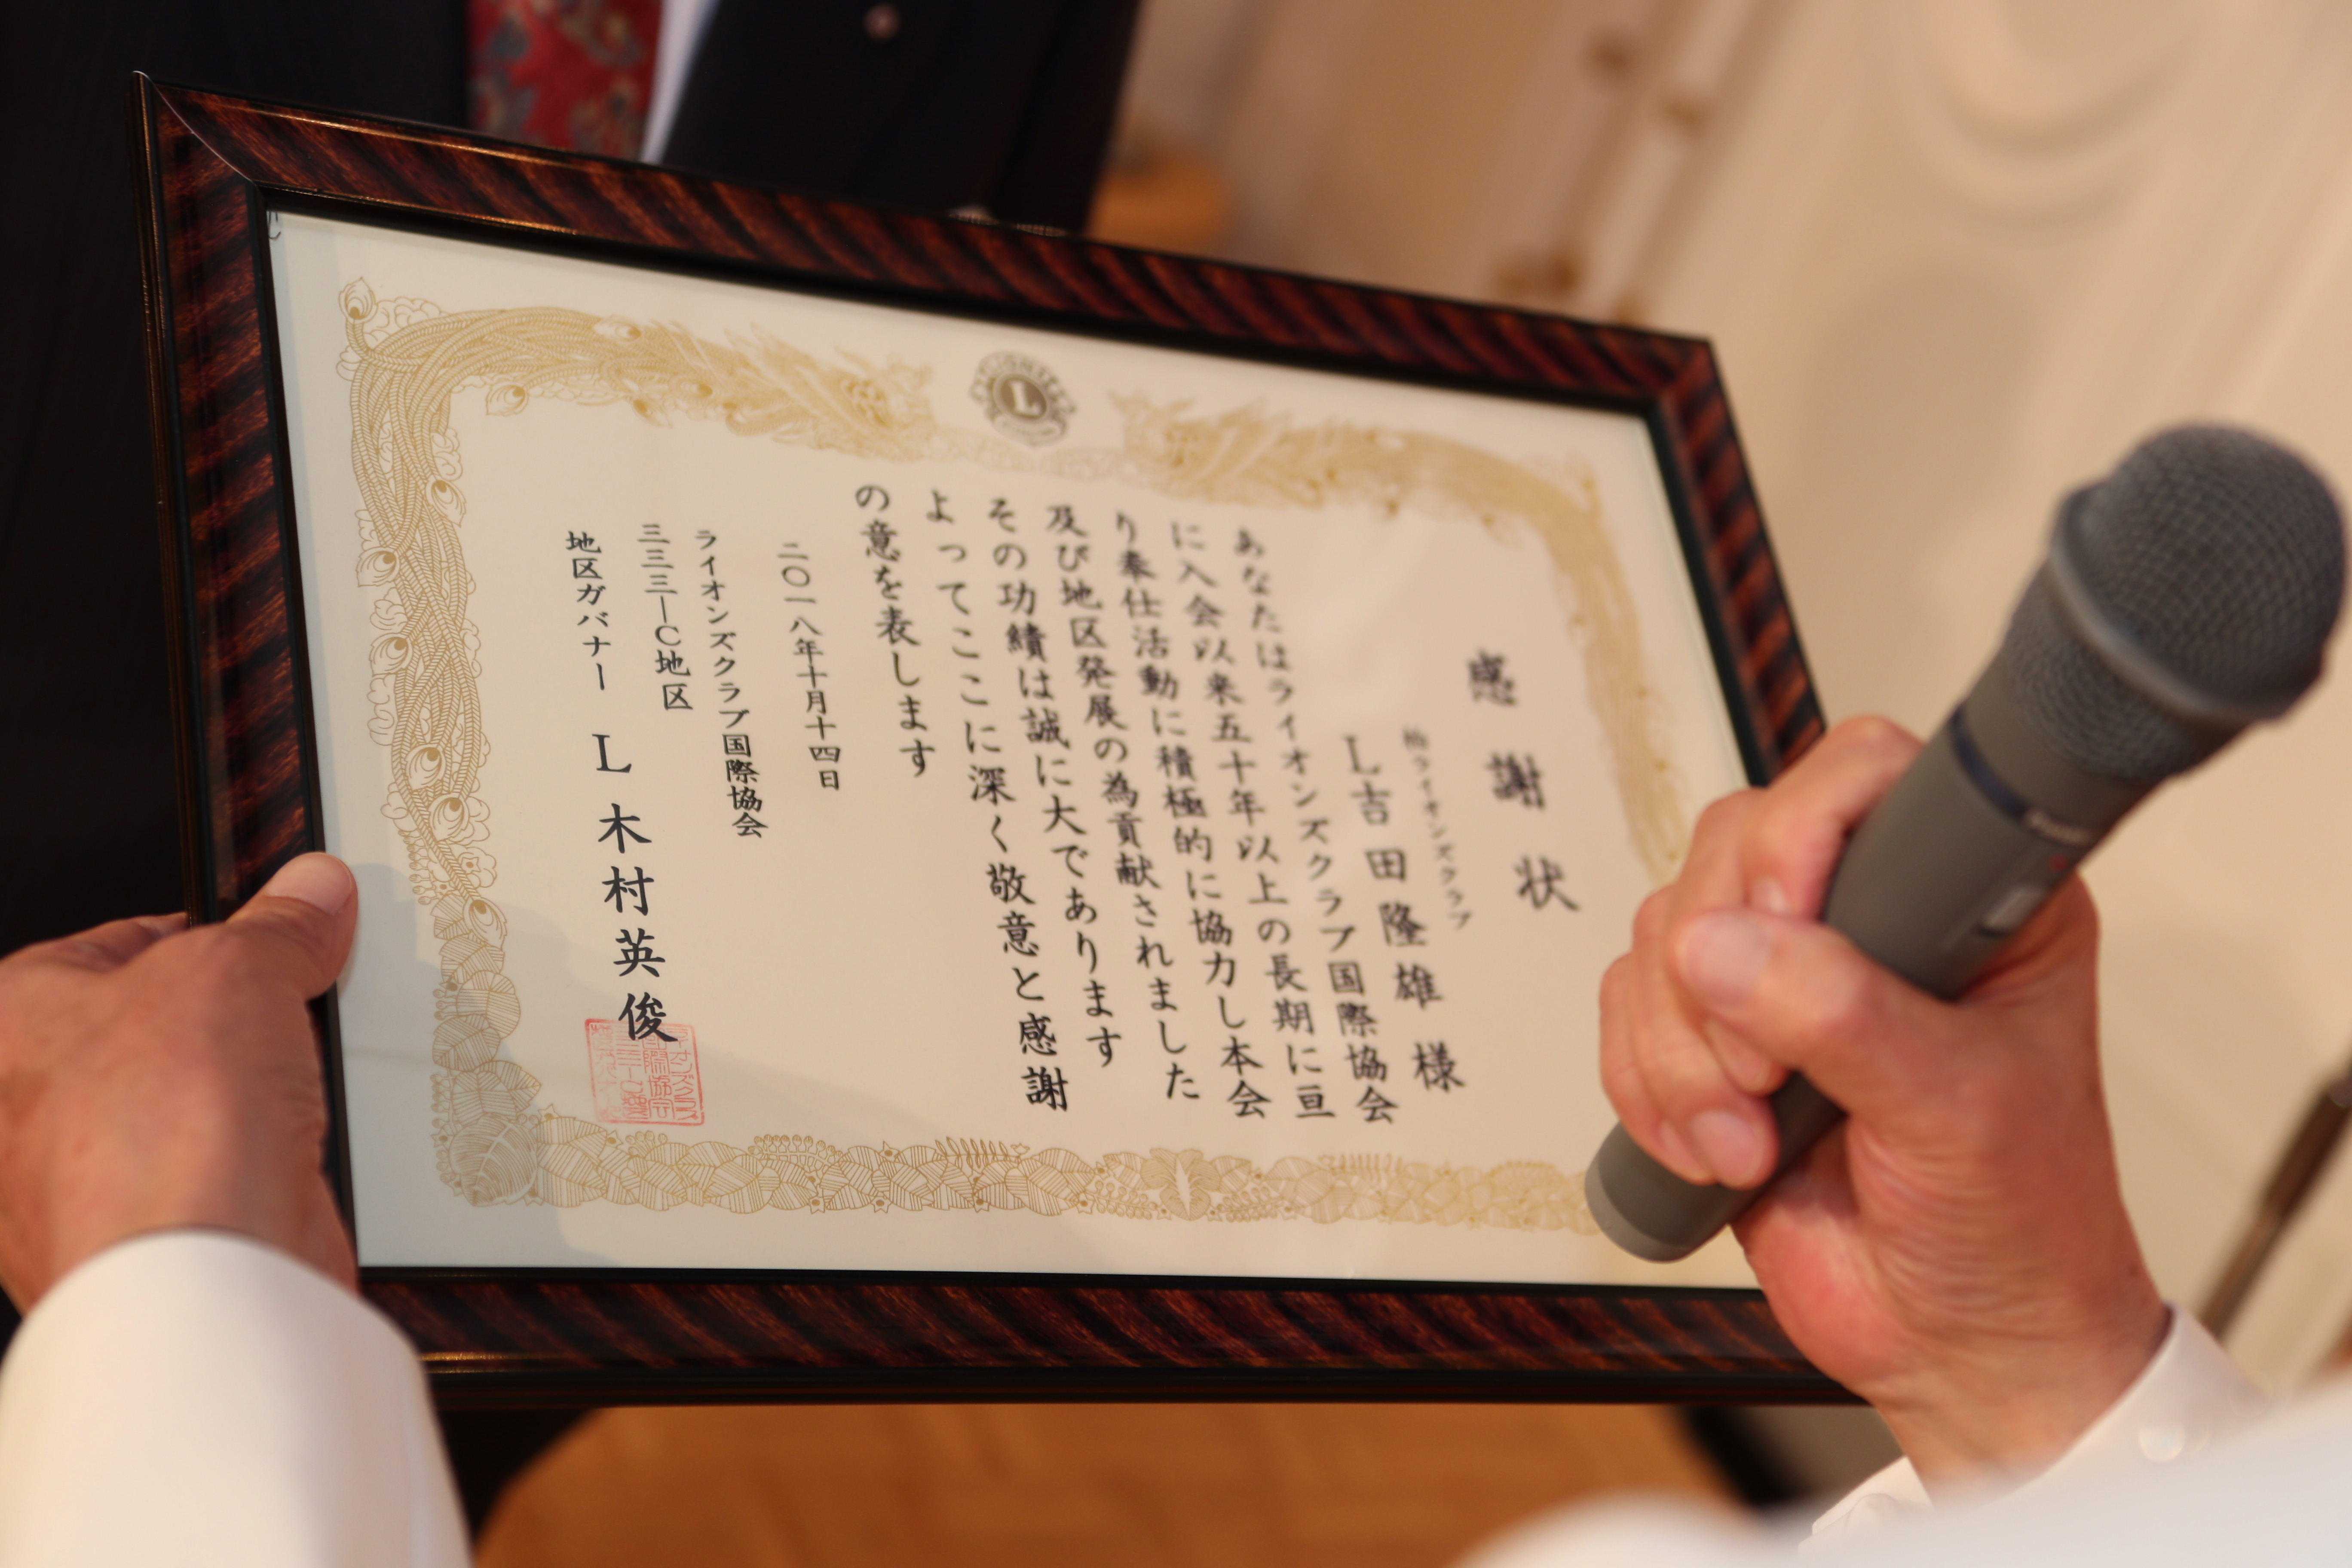 感謝状
柏ライオンズクラブ
L吉田隆雄様
あなたはライオンズクラブ国際協会
に入会以来五十年以上の長期に亘
り奉仕活動に積極的に協力し本会
及び地区発展の為貢献されました
その功績は誠に大であります
よってここに深く敬意と感謝
の意を表します
二〇一八年十月十四日
ライオンズクラブ国際協会
三三三ーC地区
地区ガバナー L木村英俊
L